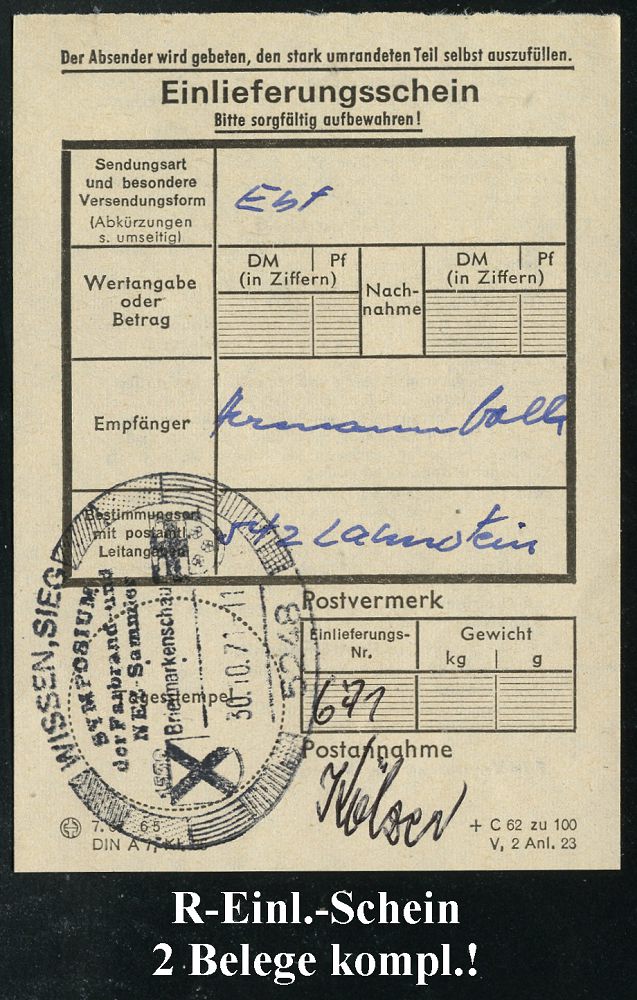 Der Absender wird gebeten, den stark umrandeten Teil selbst auszufüllen.
Einlieferungsschein
Bitte sorgfältig aufbewahren!
Sendungsart
und besondere
Versendungsform
(Abkürzungen
s. umseitig)
Ebf
Wertangabe
oder
Betrag
DM Pf
(in Ziffern)
Nach-
nahme
DM Pf
(in Ziffern)
Empfänger
Hermann
Bestimmungsort
mit postamtl.
Leitangaben
542 Lahnstein
Postvermerk
Einlieferungs-
Nr.
Gewicht
kg g
671
Postannahme
WISSEN, SIEG
5248
SYMPOSIUM
der Farbrand- und
NEZ Sammler
Briefmarkenschau
30.10.71
+ C 62 zu 100
DIN A 7,
V, 2 Anl. 23
R-Einl.-Schein
2 Belege kompl.!